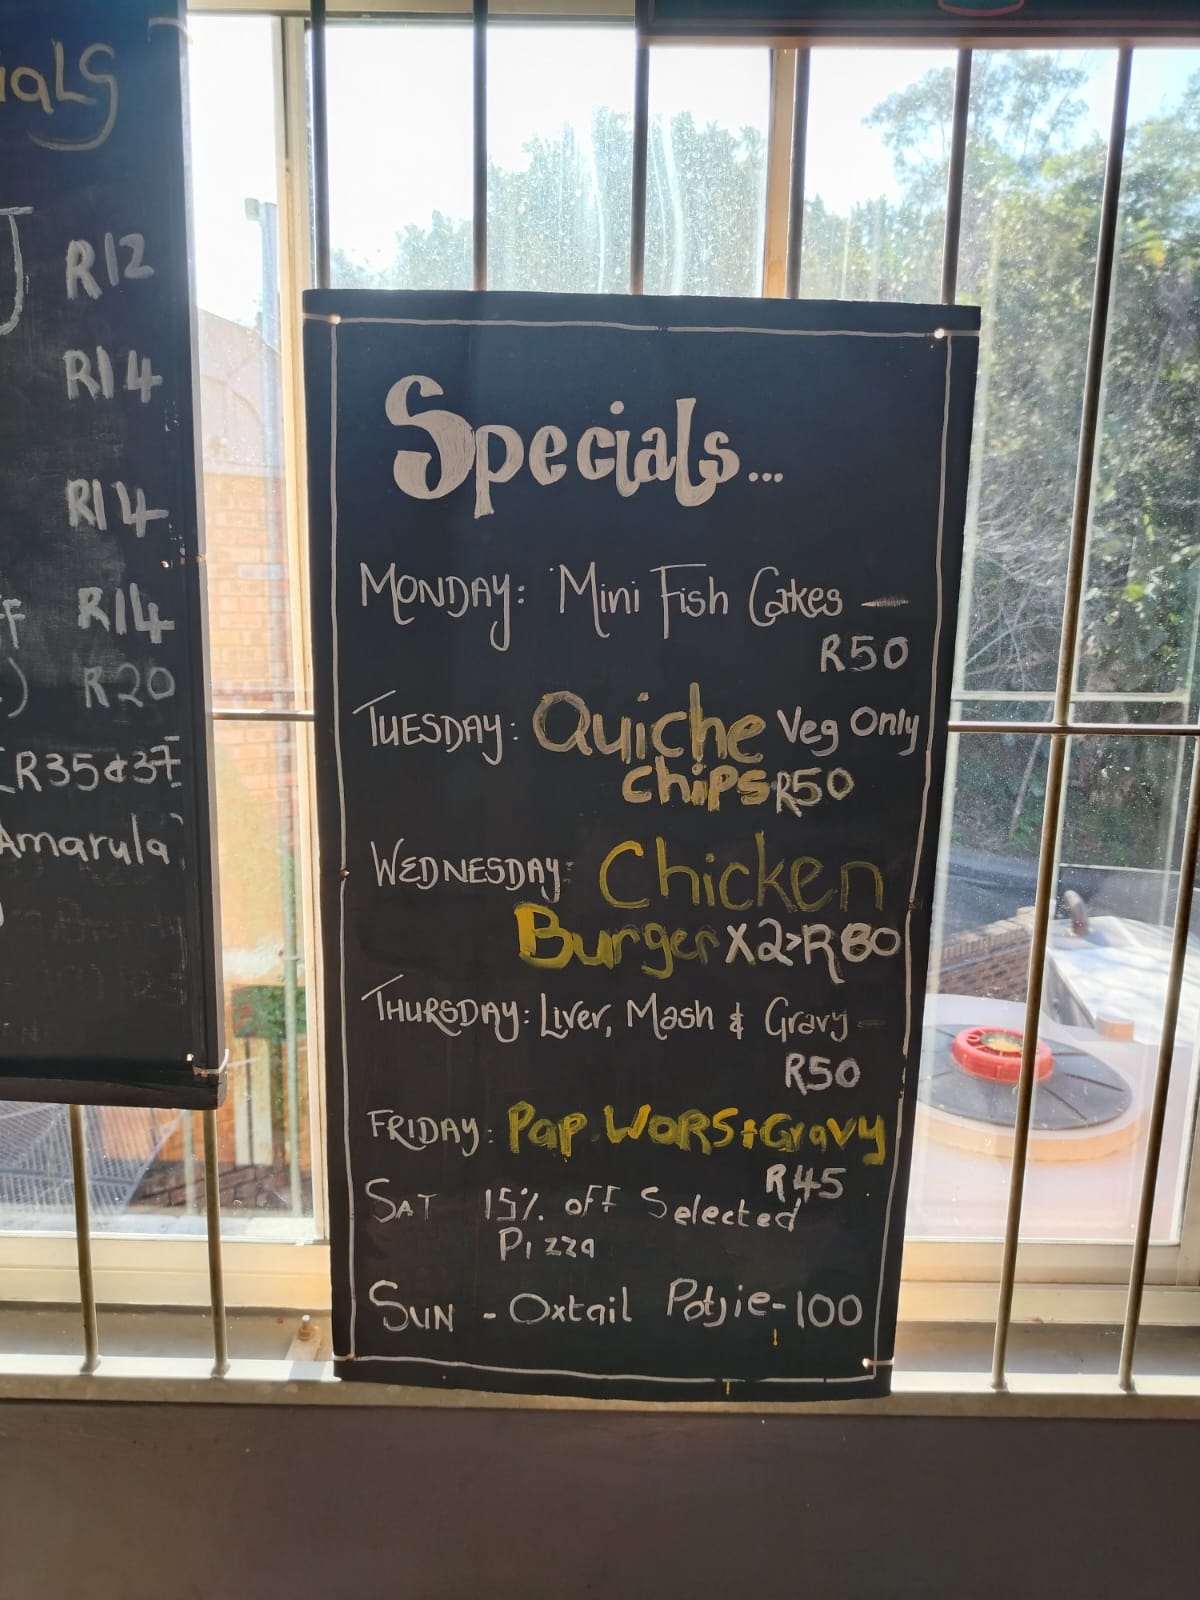 R12
R14
R14
R14
R20
R35&37
Amarula
Specials...
MONDAY: Mini Fish Cakes —
R50
TUESDAY: Quiche Veg Only
chips R50
WEDNESDAY: Chicken
Burger X2>R80
THURSDAY: Liver, Mash & Gravy -
R50
FRIDAY: Pap WORS + Gravy
R45
SAT 15% off Selected
Pizza
SUN - Oxtail Potjie-100